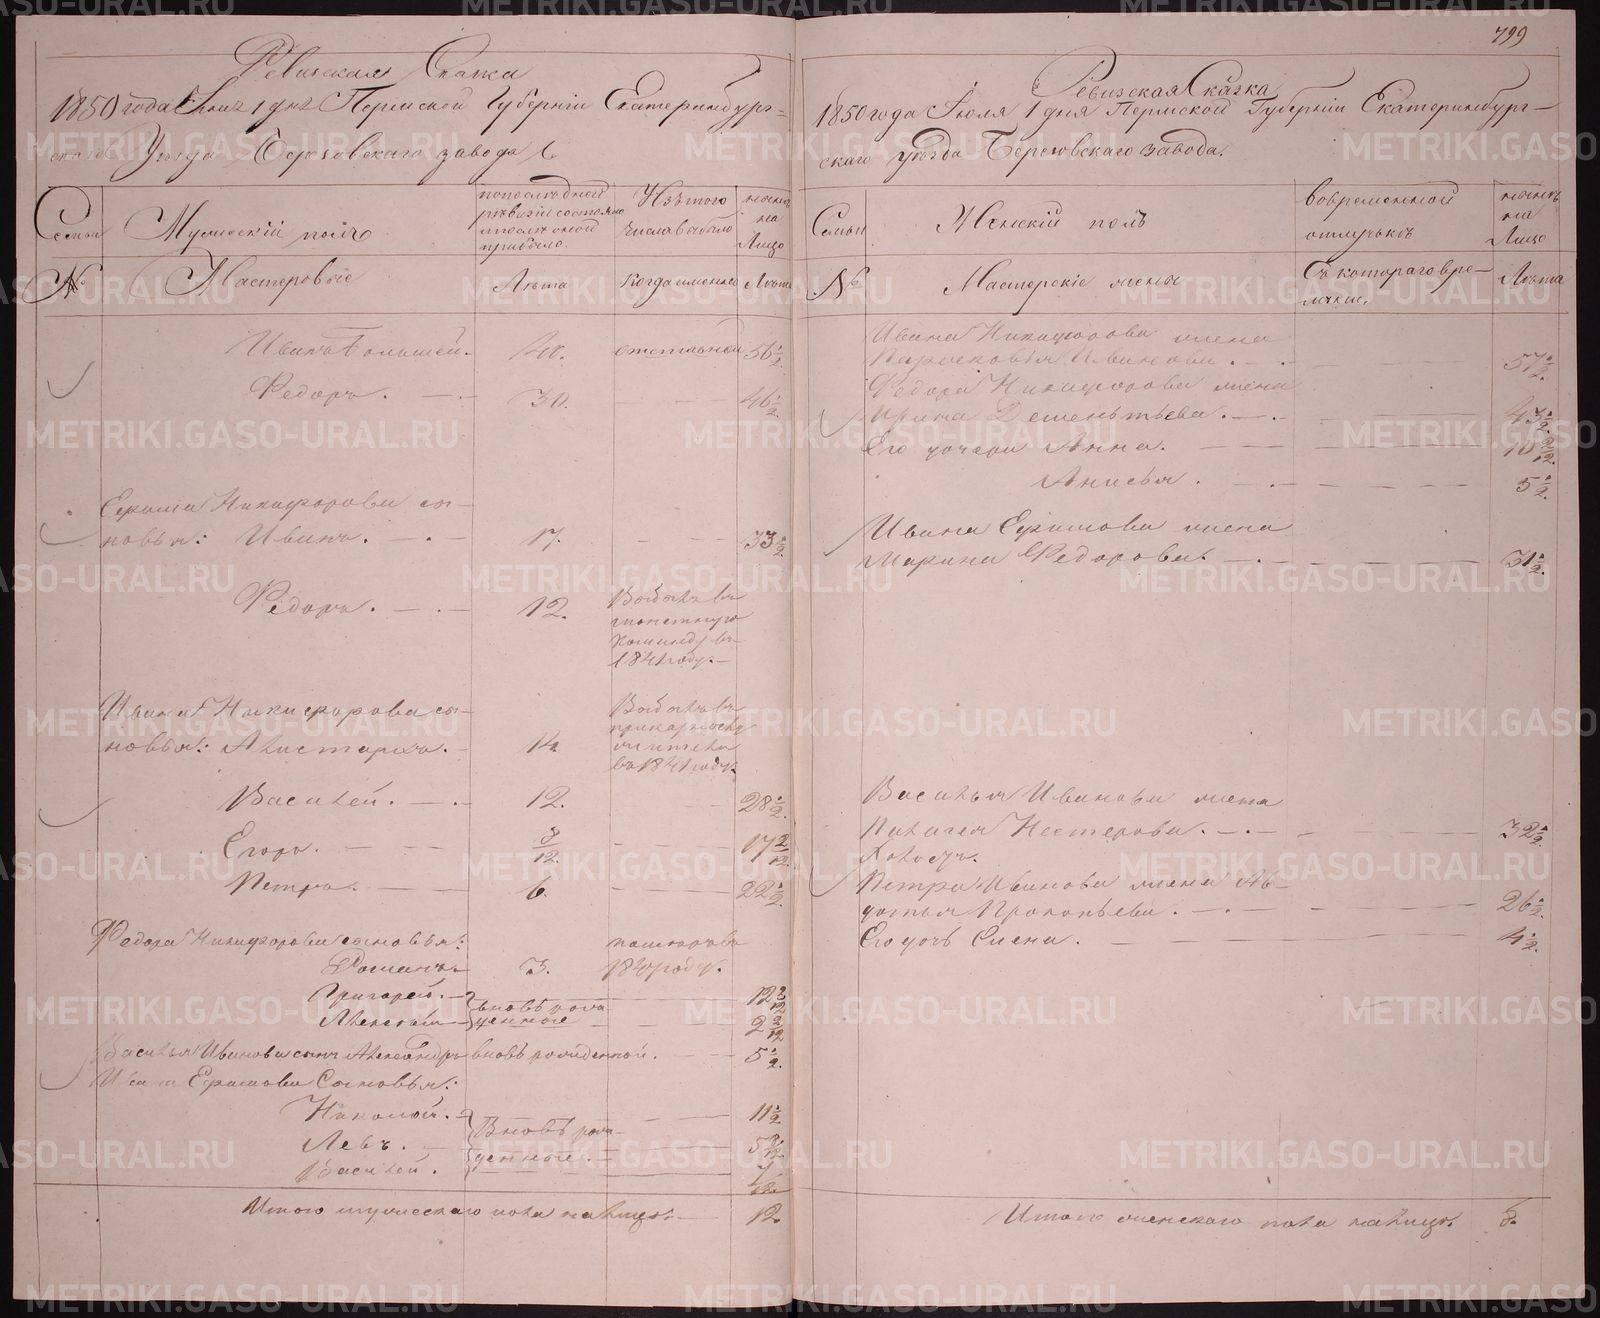 799
Ревизская Сказка
1850 года Июля 1 дня Пермской Губернiи Екатеринбург=
скаго Уѣзда Березовскаго завода
Семьи
Мужескiй полъ
по последней ревизiи состояло и после оной прибыло.
Изъ того числа выбыло
нынѣ на Лицо
№
Мастеровые
Лѣта
Когда именно
Лѣта
Иванъ большей. 40. отставной 56
Федоръ. 30. 46
Ефима Никифорова сы-
новья: Иванъ. 17. 33
Федоръ. 12. Выбылъ въ
монетную
команду въ
1841 году.
Ивана Никифорова сы-
новья: Алистархъ. 14 Выбылъ въ
въ 1841 году.
Василей. 12. 28
Егоръ. 3/12. 17
Петръ. 6. 22
Федора Никифорова сыновья: помер въ
Романъ 3. году.
Григорей. 12
Алексѣй вновь рож-
денные 2
Василья Иванова сынъ Александръ вновь рожденной. 5
Ивана Ефимова Сыновья:
Николай. 11
Левъ. Вновь рож- 5
Василей. денные.
Итого мужескаго пола на лицо. 12.
Ревизская Сказка
1850 года Iюля 1 дня Пермской Губернiи Екатеринбург-
скаго уѣзда Березовскаго завода.
Семьи
Женскiй полъ
во временной отлучкѣ
нынѣ на Лицо
№
Мастерскiе жены
Съ котораго вре-
мени.
Лѣта
Ивана Никифорова жена
Парасковья Иванова. 57
Федора Никифорова жена
Ирина Дементьева. 43
Его дочери Анна. 10
Анисья. 5
Ивана Ефимова жена
Марина Федорова. 31
Василья Иванова жена
Палагея Нестерова. 32
Петра Иванова жена Ав-
дотья Прокопьева. 26
Его дочь Елена. 4
Итого женскаго пола на лицо. 8.
METRIKI.GASO-URAL.RU